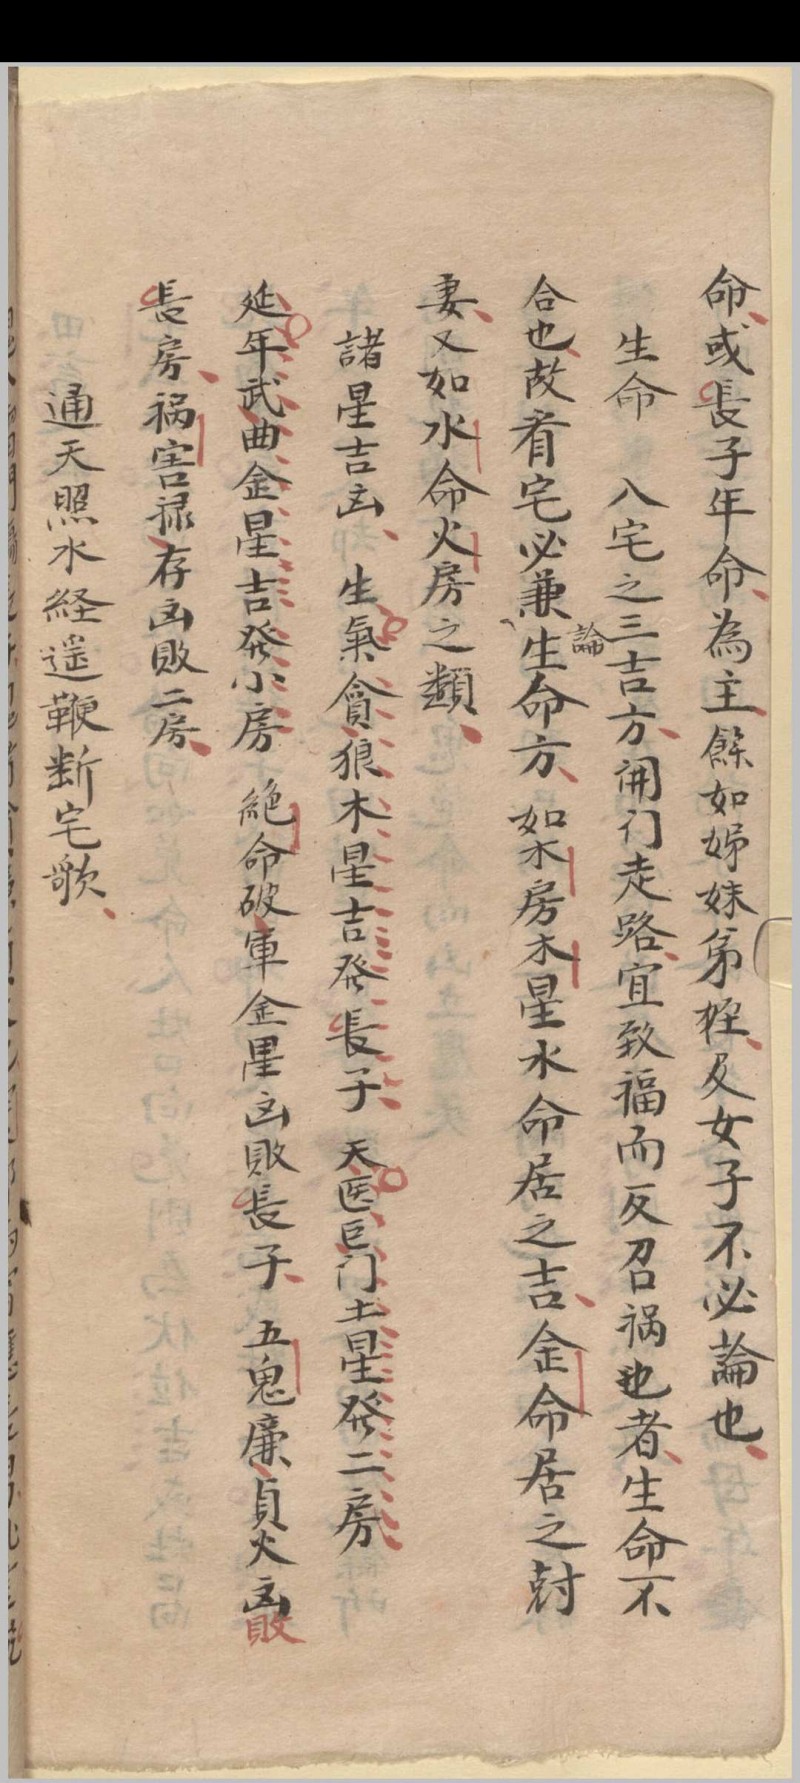 命或長子年命為主餘如姊妹弟姪及女子不必論也
生命　八宅之三吉方開门走路宜致福而反召祸也者生命不
合也故看宅必兼論生命方如木房木星水命居之吉金命居之尅
妻又如水命火房之類
諸星吉凶　生氣貪狼木星吉發長子　天医巨门土星發二房
延年武曲金星吉發小房　絶命破軍金星凶敗長子　五鬼廉貞火凶敗
長房祸害祿存凶敗二房
通天照水経遥鞭断宅歌